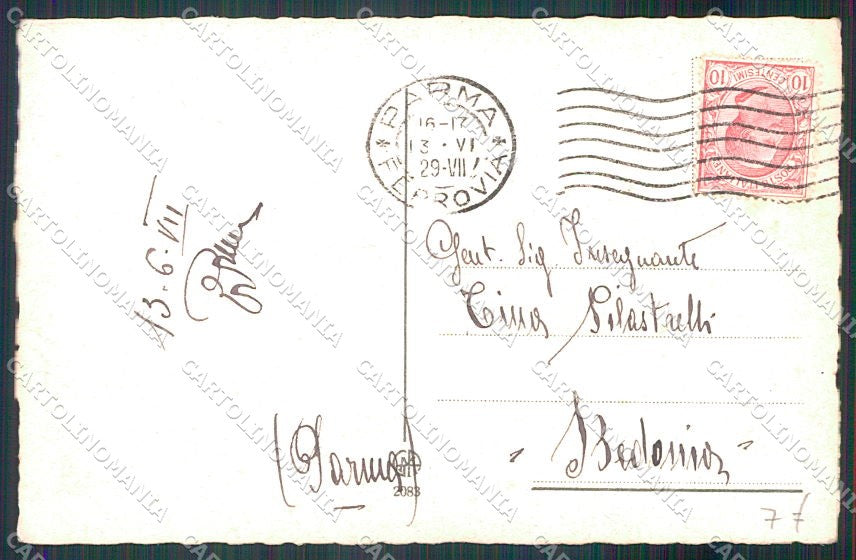 PARMA
FERROVIA
16-17
13 · VI
29·VII
10 CENTESIMI 10
POSTE ITALIANE
Gent. Sig. Insegnante
Tina Pilastrelli
" Bedonia "
13-6-VII
(Parma)
2083
77
CARTOLINOMANIA